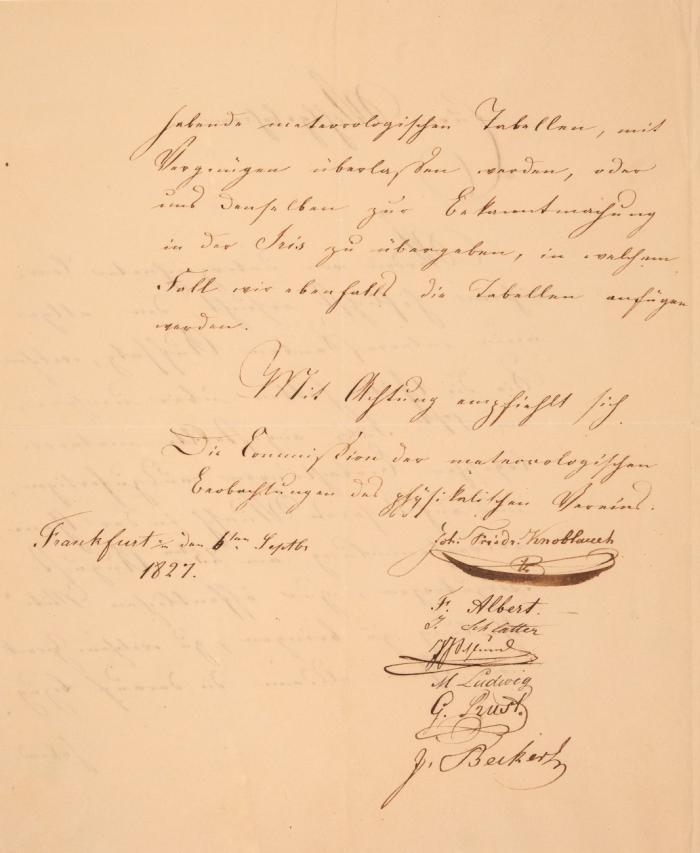 habende meteorologischen Tabellen, mit
Vergnügen überlassen werden, oder
uns denselben zur Bekanntmachung
in der Iris zu übergeben, in welchem
Fall wir ebenfalls die Tabellen anfügen
werden.
Mit Achtung empfiehlt sich
Die Commission der meteorologischen
Beobachtungen des physikalischen Vereins.
Frankfurt den 6ten Septbr
1827.
Joh. Friedr. Knoblauch
F. Albert.
J. Schlatter
M Ludwig
G.
J. Beckert